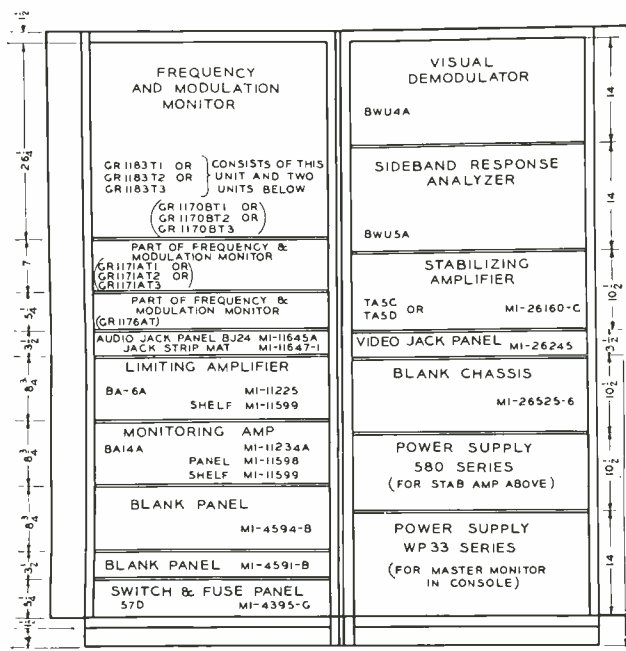 1/2
FREQUENCY
AND MODULATION
MONITOR
GR1183T1 OR
GR1183T2 OR
GR1183T3
CONSISTS OF THIS
UNIT AND TWO
UNITS BELOW
(GR1170BT1 OR
GR1170BT2 OR
GR1170BT3)
26 1/4
PART OF FREQUENCY &
MODULATION MONITOR
(GR1171AT1 OR)
GR1171AT2 OR
GR1171AT3
7
PART OF FREQUENCY &
MODULATION MONITOR
(GR1176AT)
5 1/4
AUDIO JACK PANEL BJ24 MI-11645A
JACK STRIP MAT MI-11647-1
3 1/2
LIMITING AMPLIFIER
BA-6A MI-11225
SHELF MI-11599
8 3/4
MONITORING AMP
BA14A MI-11234A
PANEL MI-11598
SHELF MI-11599
8 3/4
BLANK PANEL
MI-4594-B
8 3/4
BLANK PANEL MI-4591-B
3 1/2
SWITCH & FUSE PANEL
57D MI-4395-G
5 1/4
VISUAL
DEMODULATOR
BWU4A
14
SIDEBAND RESPONSE
ANALYZER
BWU5A
14
STABILIZING
AMPLIFIER
TA5C OR MI-26160-C
TA5D
10 1/2
VIDEO JACK PANEL MI-26245
3 1/2
BLANK CHASSIS
MI-26525-6
10 1/2
POWER SUPPLY
580 SERIES
(FOR STAB AMP ABOVE)
10 1/2
POWER SUPPLY
WP33 SERIES
(FOR MASTER MONITOR
IN CONSOLE)
14